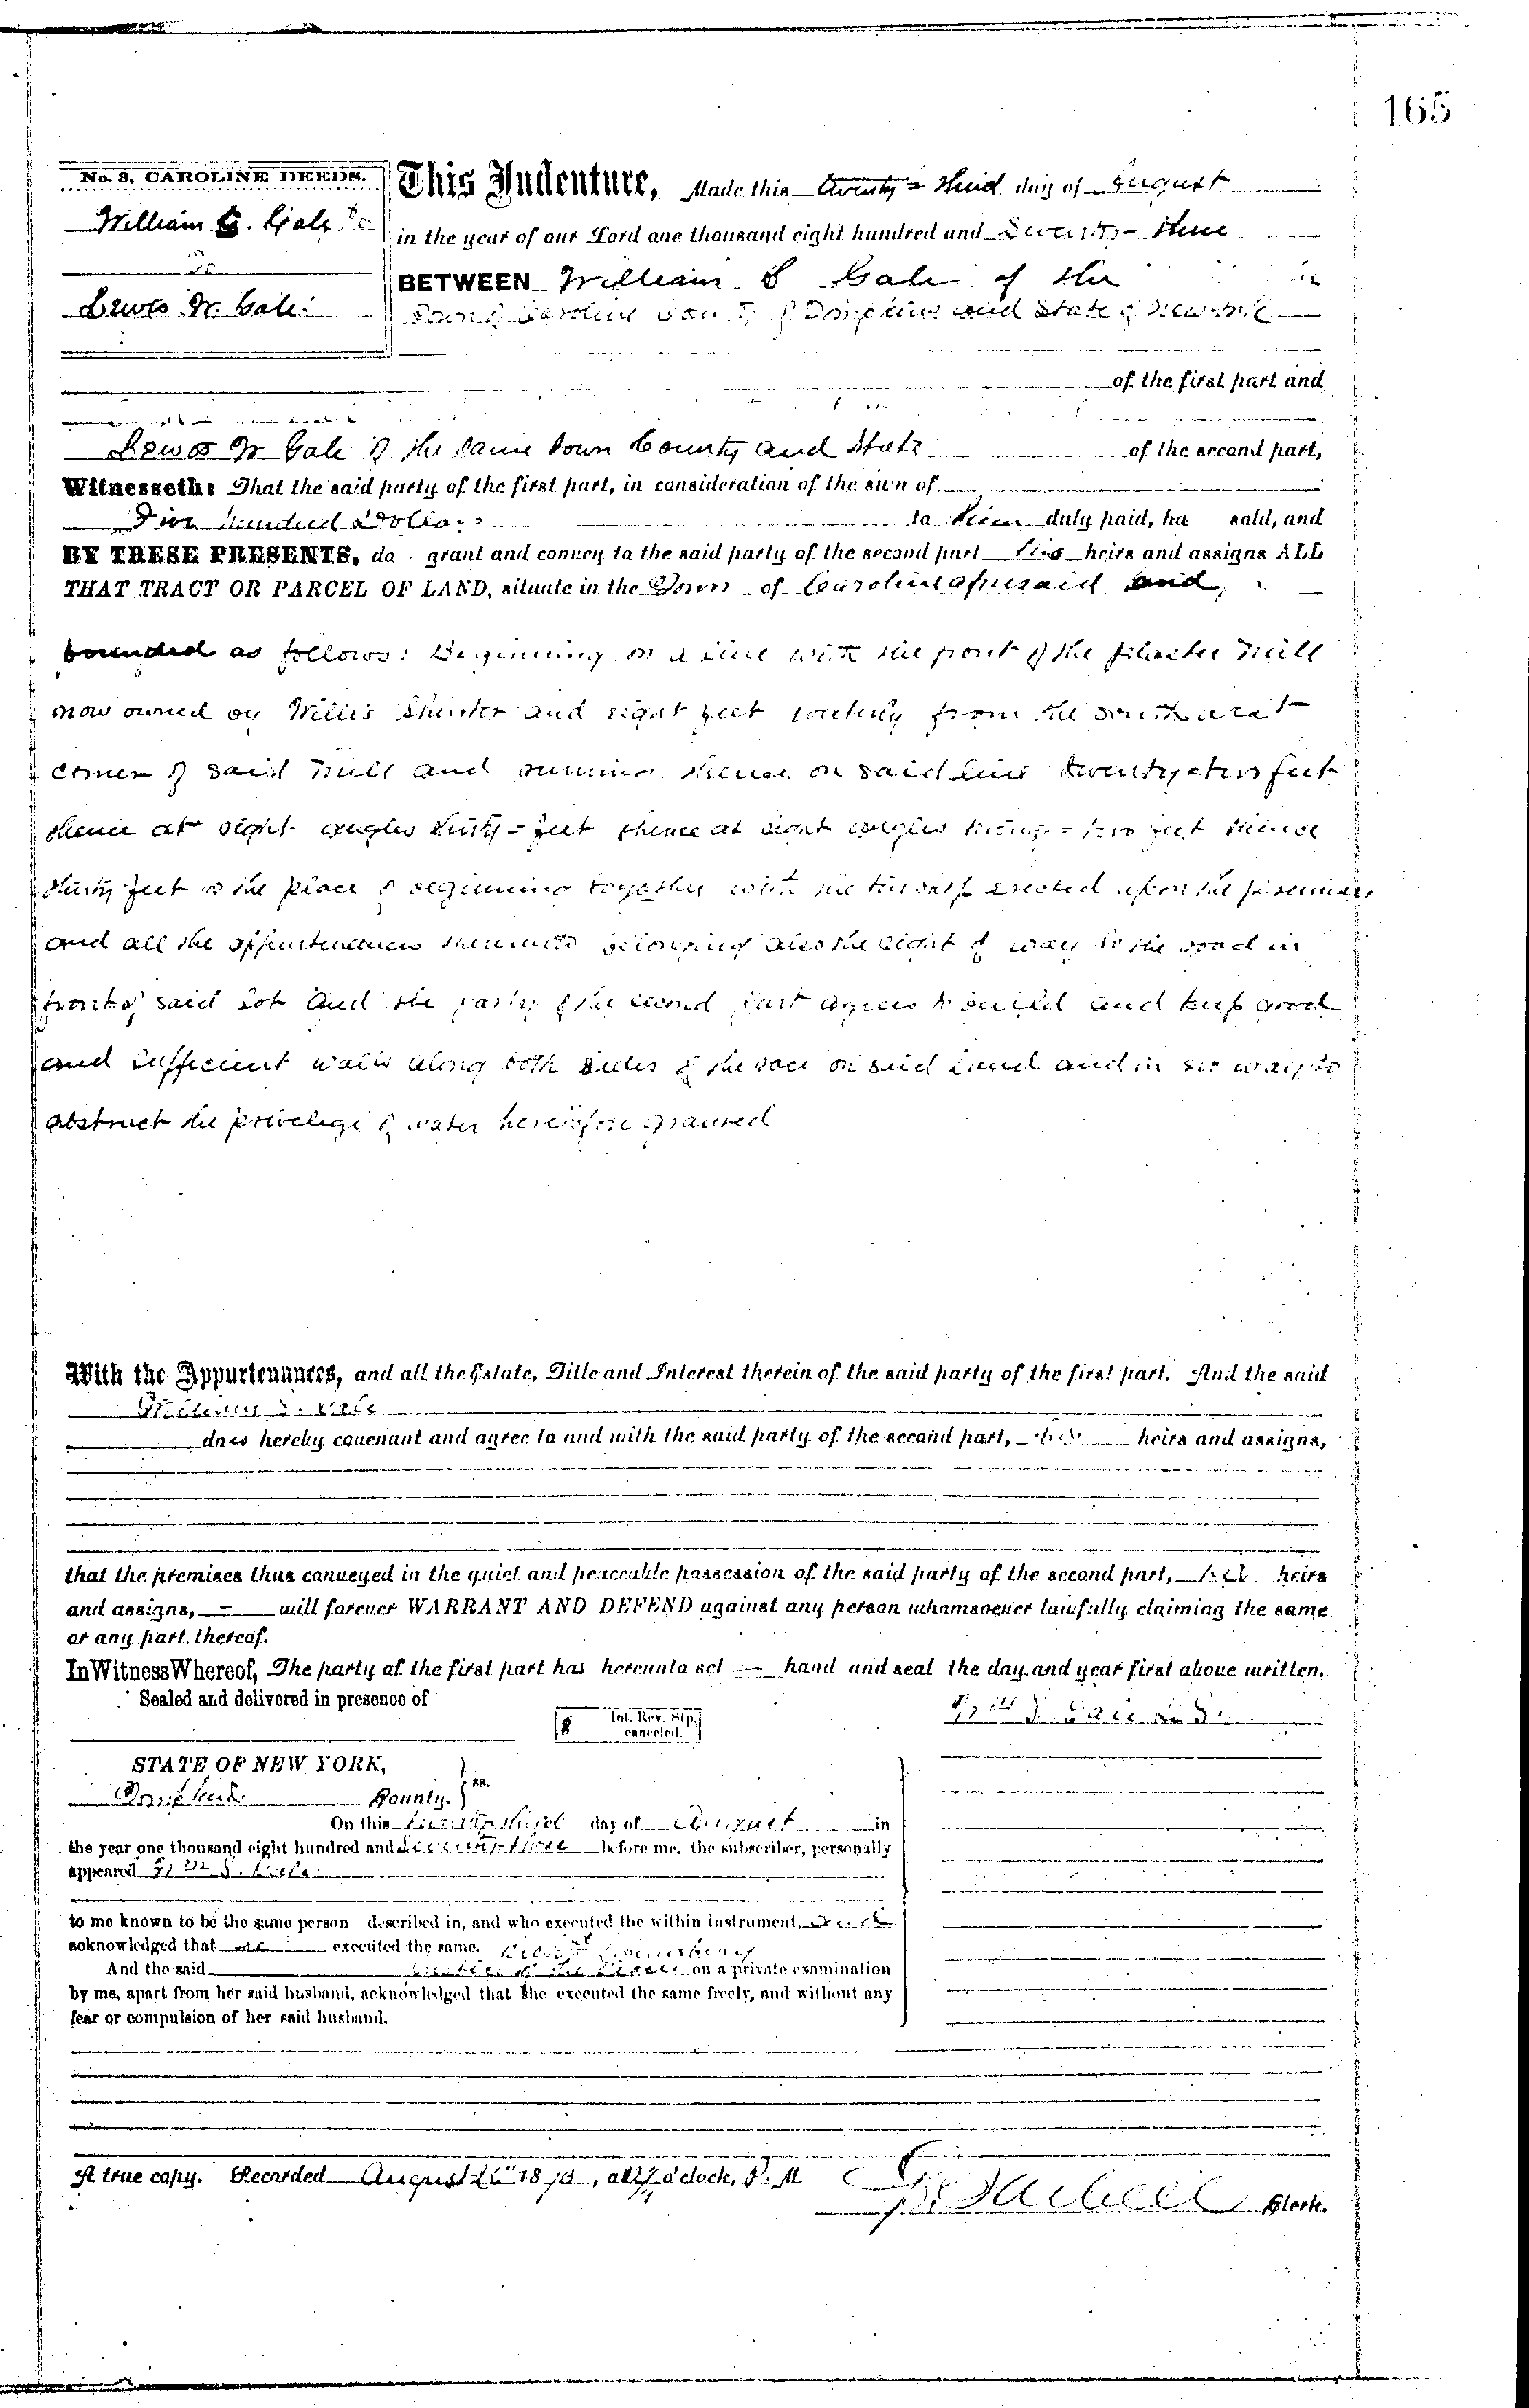 165
No. 8, CAROLINE DEEDS.
William S. Gale
To
Lewis W. Gale
This Indenture, Made this twenty-third day of August
in the year of our Lord one thousand eight hundred and Seventy-three
BETWEEN William S Gale of the
Town of Caroline County of Tompkins and State of New York
of the first part and
Lewis W Gale of the same Town County and State of the second part,
Witnesseth: That the said party of the first part, in consideration of the sum of
hundred Dollars to him duly paid, ha sold, and
BY THESE PRESENTS, do grant and convey to the said party of the second part his heirs and assigns ALL
THAT TRACT OR PARCEL OF LAND, situate in the Town of Caroline aforesaid and
bounded as follows: Beginning on a line with the front of the plaster mill
now owned by Willis and eight feet from the
corner of said mill and running thence on said line twenty two feet
thence at right angles thirty feet thence at right angles twenty-two feet thence
thirty feet to the place of beginning together with the erected upon the premises
and all the appurtenances thereunto belonging also the right of way to the road in
front of said lot and the party of the second part agrees to build and keep good
and sufficient walls along both sides of the race on said land and in no way to
obstruct the privelege of water heretofore granted
With the Appurtenances, and all the Estate, Title and Interest therein of the said party of the first part. And the said
William S. Gale
does hereby covenant and agree to and with the said party of the second part, his heirs and assigns,
that the premises thus conveyed in the quiet and peaceable possession of the said party of the second part, his heirs
and assigns, will forever WARRANT AND DEFEND against any person whomsoever lawfully claiming the same
or any part thereof.
In Witness Whereof, The party of the first part has hereunto set hand and seal the day and year first above written.
Sealed and delivered in presence of
Wm S Gale L S
[$ Int. Rev. Stp. canceled.]
STATE OF NEW YORK,
Tompkins County. } ss.
On this twenty third day of August in
the year one thousand eight hundred and seventy-three before me, the subscriber, personally
appeared Wm S. Gale
to me known to be the same person described in, and who executed the within instrument,
acknowledged that he executed the same.
And the said Justice of the Peace on a private examination
by me, apart from her said husband, acknowledged that she executed the same freely, and without any
fear or compulsion of her said husband.
A true copy. Recorded August 26 1873, at o'clock, P. M
Clerk.